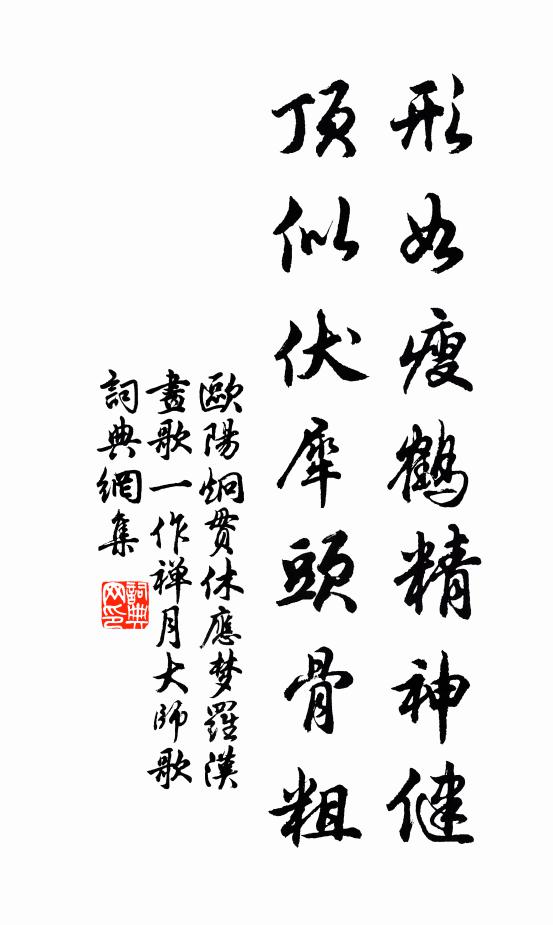 形如瘦鶴精神健
頂似伏犀頭骨粗
歐陽炯貫休應梦羅漢
畫歌一作禅月大師歌
詞典網集
詞典网印